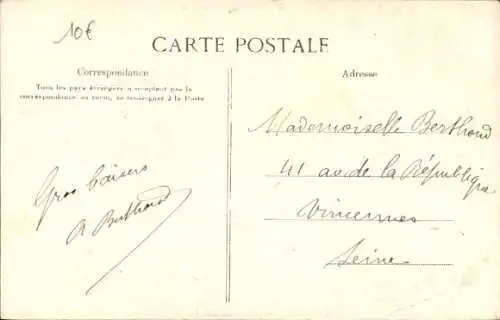 10€
CARTE POSTALE
Correspondance
Tous les pays étrangers n'acceptent pas la
correspondance au verso, se renseigner à la Poste
Adresse
Gros baisers
A Berthoud
Mademoiselle Berthoud
41 av. de la République
Vincennes
Seine